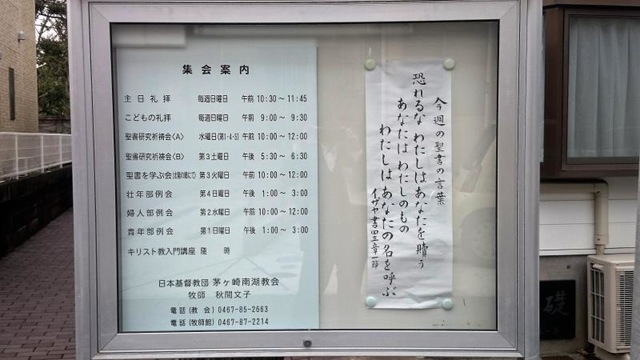 集会案内
主日礼拝 毎週日曜日 午前 10:30～11:45
こどもの礼拝 毎週日曜日 午前 9:00～9:30
聖書研究祈祷会〈A〉 水曜日(第1・4・5) 午前 10:00～12:00
聖書研究祈祷会〈B〉 第3土曜日 午後 5:30～6:30
聖書を学ぶ会 第3火曜日 午前 10:00～12:00
壮年部例会 第4日曜日 午後 1:00～3:00
婦人部例会 第2水曜日 午前 10:00～12:00
青年部例会 第1日曜日 午後 1:00～3:00
キリスト教入門講座 随時
日本基督教団 茅ヶ崎南湖教会
牧師 秋間文子
電話(教会) 0467-85-2663
電話(牧師館) 0467-87-2214
今週の聖書の言葉
恐れるな わたしはあなたを贖う
あなたは わたしのもの
わたしは あなたの名を呼ぶ
イザヤ書四三章一節
礎